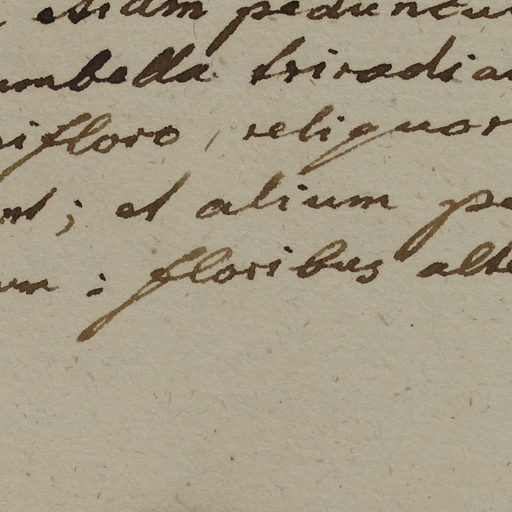 etiam peduncu
umbella triradia
ifloro, reliquor
nt; et alium pe
um: floribus alte